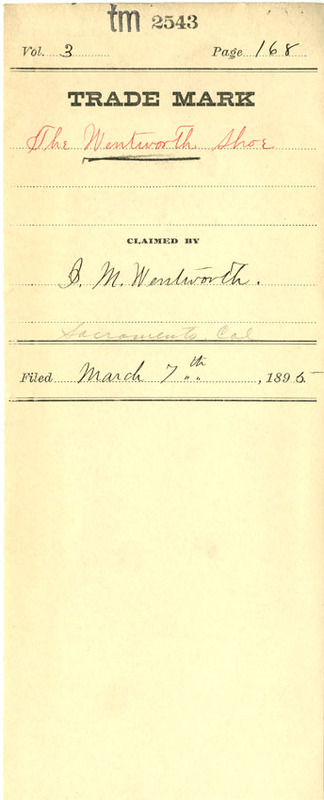 tm 2543
Vol. 3 Page 168
TRADE MARK
The Wentworth Shoe
CLAIMED BY
M. Wentworth.
Sacramento Cal
Filed March 7th , 1895